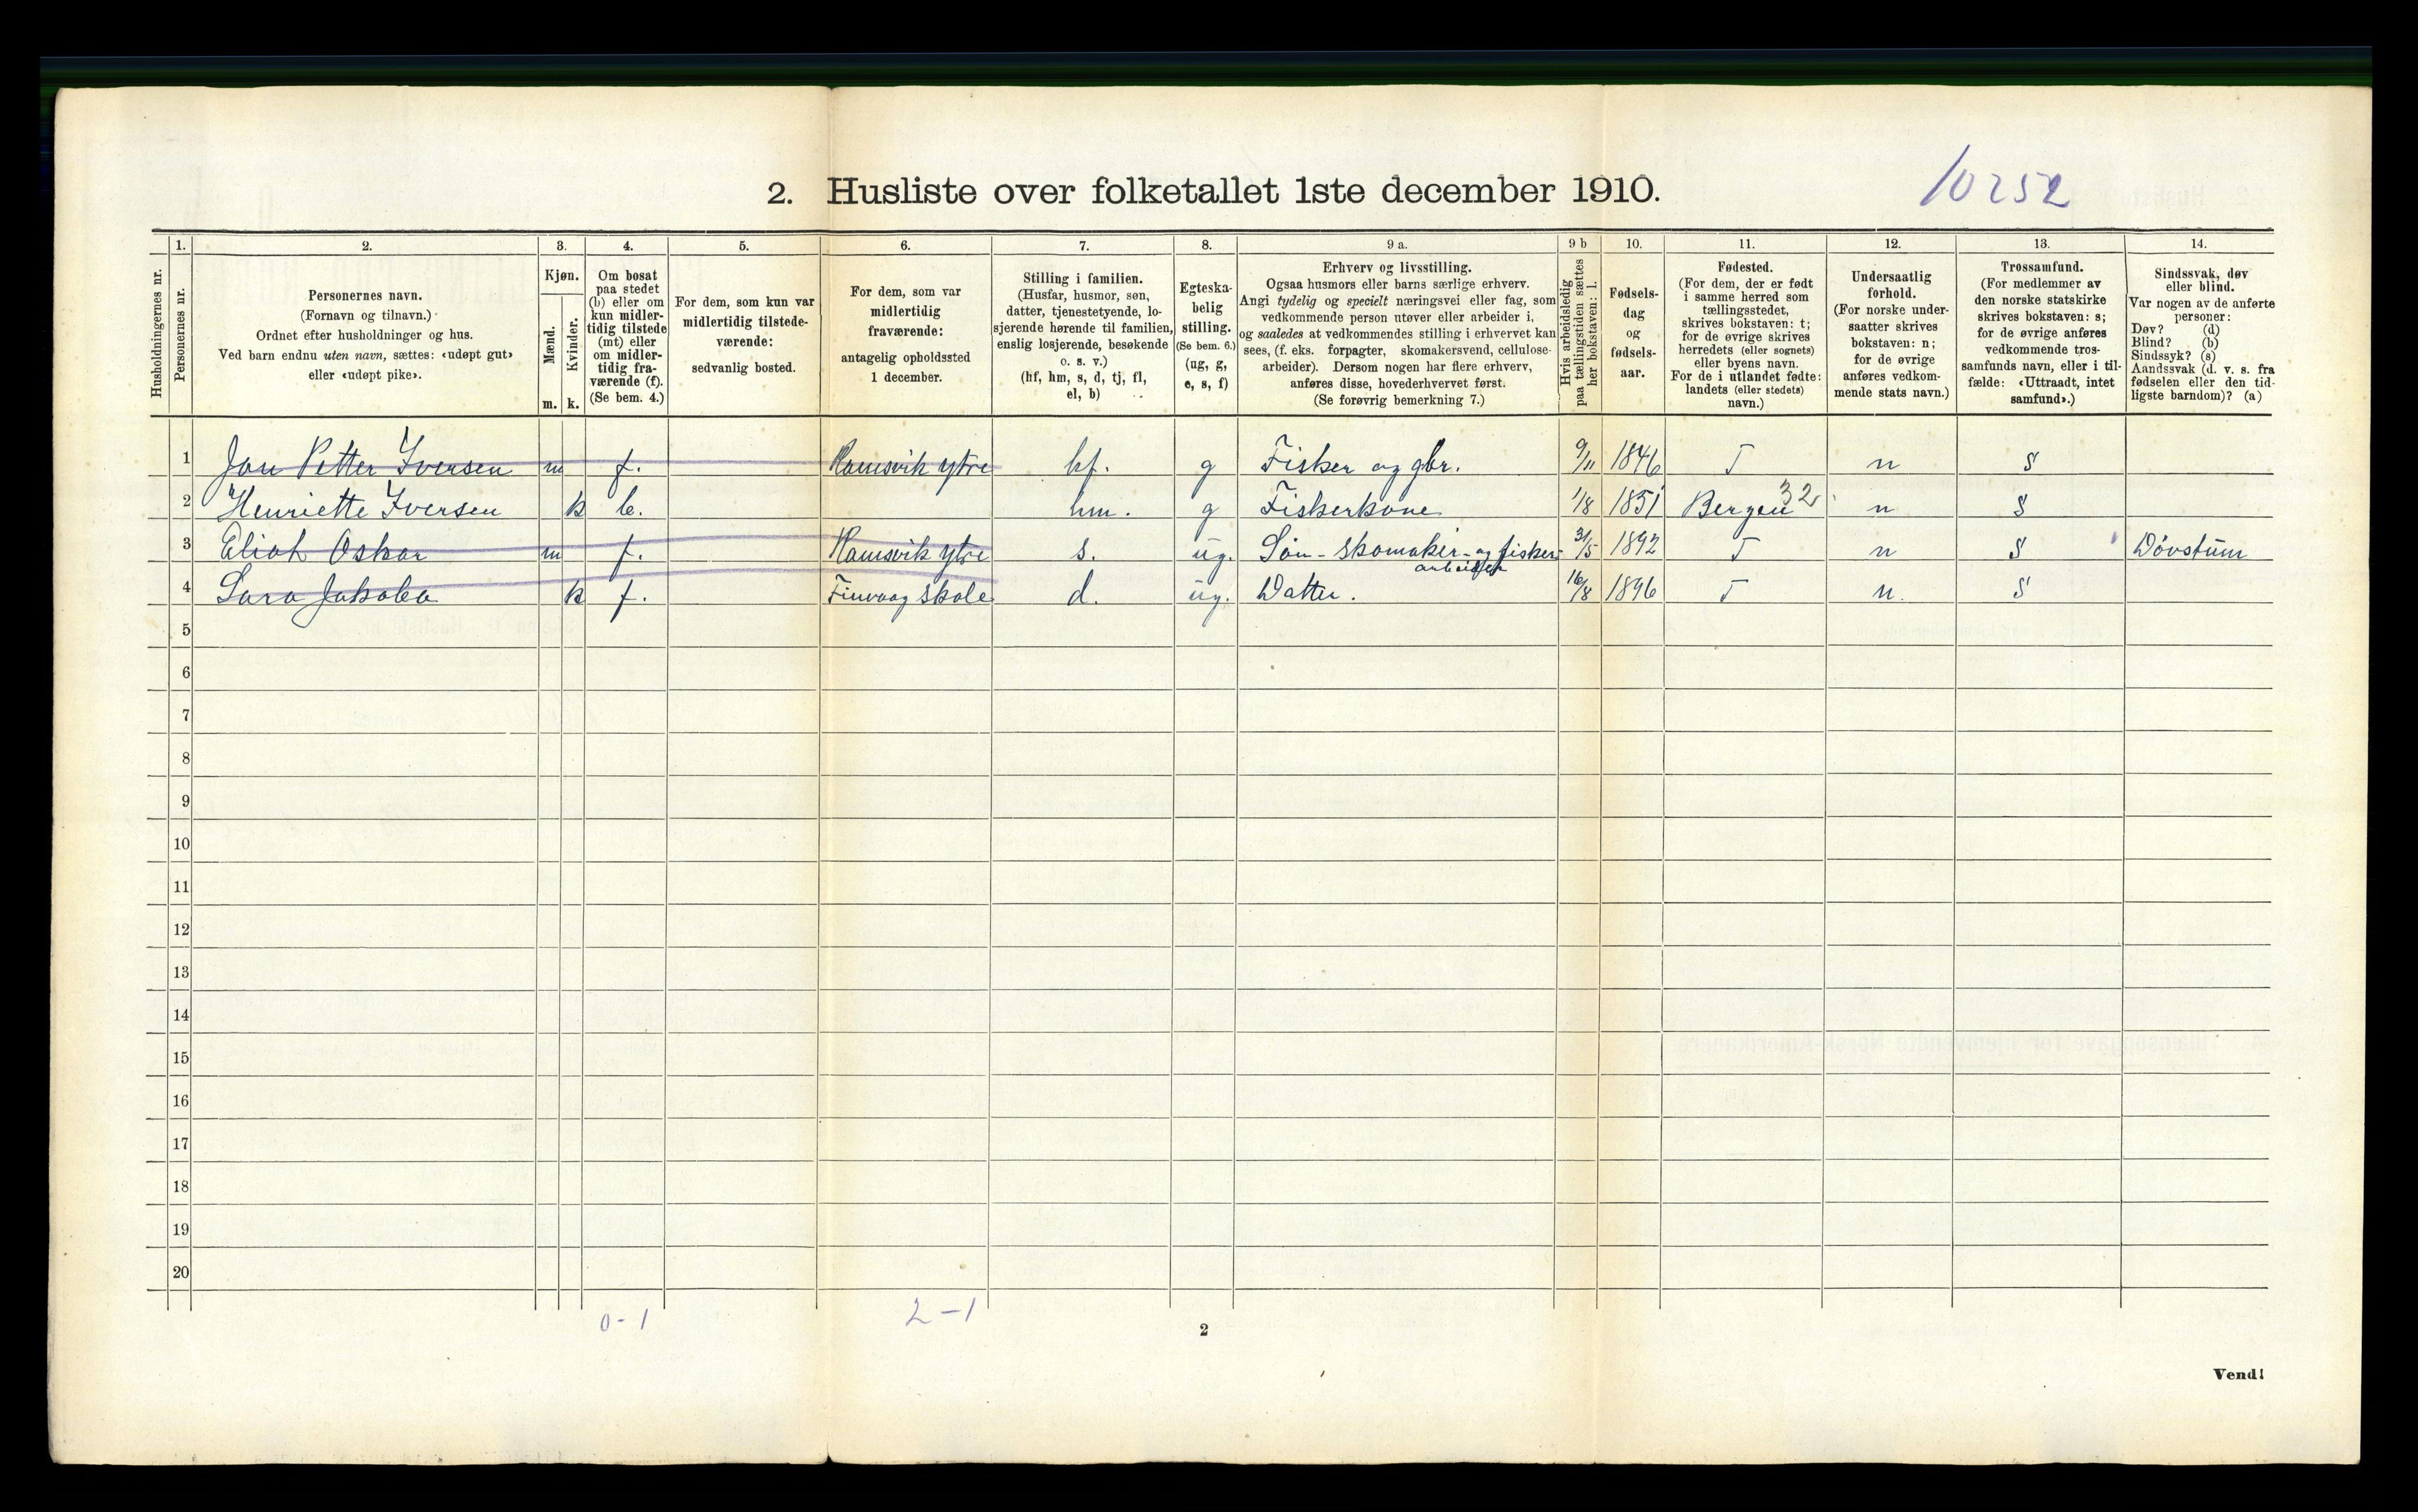 2. Husliste over folketallet 1ste december 1910.
10252
Husholdningernes nr.
1.
Personernes nr.
2.
Personernes navn.
(Fornavn og tilnavn.)
Ordnet efter husholdninger og hus.
Ved barn endnu uten navn, sættes: «udøpt gut»
eller «udøpt pike».
3.
Kjøn.
Mænd.
Kvinder.
m. k.
4.
Om bosat
paa stedet
(b) eller om
kun midler-
tidig tilstede
(mt) eller
om midler-
tidig fra-
værende (f).
(Se bem. 4.)
5.
For dem, som kun var
midlertidig tilstede-
værende:
sedvanlig bosted.
6.
For dem, som var
midlertidig
fraværende:
antagelig opholdssted
1 december.
7.
Stilling i familien.
(Husfar, husmor, søn,
datter, tjenestetyende, lo-
sjerende hørende til familien,
enslig losjerende, besøkende
o. s. v.)
(hf, hm, s, d, tj, fl,
el, b)
8.
Egteska-
belig
stilling.
(Se bem. 6.)
(ug, g,
e, s, f)
9 a.
Erhverv og livsstilling.
Ogsaa husmors eller barns særlige erhverv.
Angi tydelig og specielt næringsvei eller fag, som
vedkommende person utøver eller arbeider i,
og saaledes at vedkommendes stilling i erhvervet kan
sees, (f. eks. forpagter, skomakersvend, cellulose-
arbeider). Dersom nogen har flere erhverv,
anføres disse, hovederhvervet først.
(Se forøvrig bemerkning 7.)
9 b
Hvis arbeidsledig
paa tællingstiden sættes
her bokstaven: l.
10.
Fødsels-
dag
og
fødsels-
aar.
11.
Fødested.
(For dem, der er født
i samme herred som
tællingsstedet,
skrives bokstaven: t;
for de øvrige skrives
herredets (eller sognets)
eller byens navn.
For de i utlandet fødte:
landets (eller stedets)
navn.)
12.
Undersaatlig
forhold.
(For norske under-
saatter skrives
bokstaven: n;
for de øvrige
anføres vedkom-
mende stats navn.)
13.
Trossamfund.
(For medlemmer av
den norske statskirke
skrives bokstaven: s;
for de øvrige anføres
vedkommende tros-
samfunds navn, eller i til-
fælde: «Uttraadt, intet
samfund».)
14.
Sindssvak, døv
eller blind.
Var nogen av de anførte
personer:
Døv? (d)
Blind? (b)
Sindssyk? (s)
Aandssvak (d. v. s. fra
fødselen eller den tid-
ligste barndom)? (a)
1 Jan Petter Iversen m f. Hamsvik ytre hf. g Fisker og gbr. 9/11 1846 T n S
2 Henriette Iversen k b. hm. g Fiskerkone 1/8 1851 Bergen 32 n S
3 Eliot Oskar m f. Hamsvik ytre s. ug. Søn - skomaker- og fisker- 31/5 1892 T n S Døvstum
arbeider
4 Sara Jakoba k f. Finvaag skole d. ug. Datter. 16/8 1896 T n. S
5
6
7
8
9
10
11
12
13
14
15
16
17
18
19
20
0-1 2-1
2
Vend!